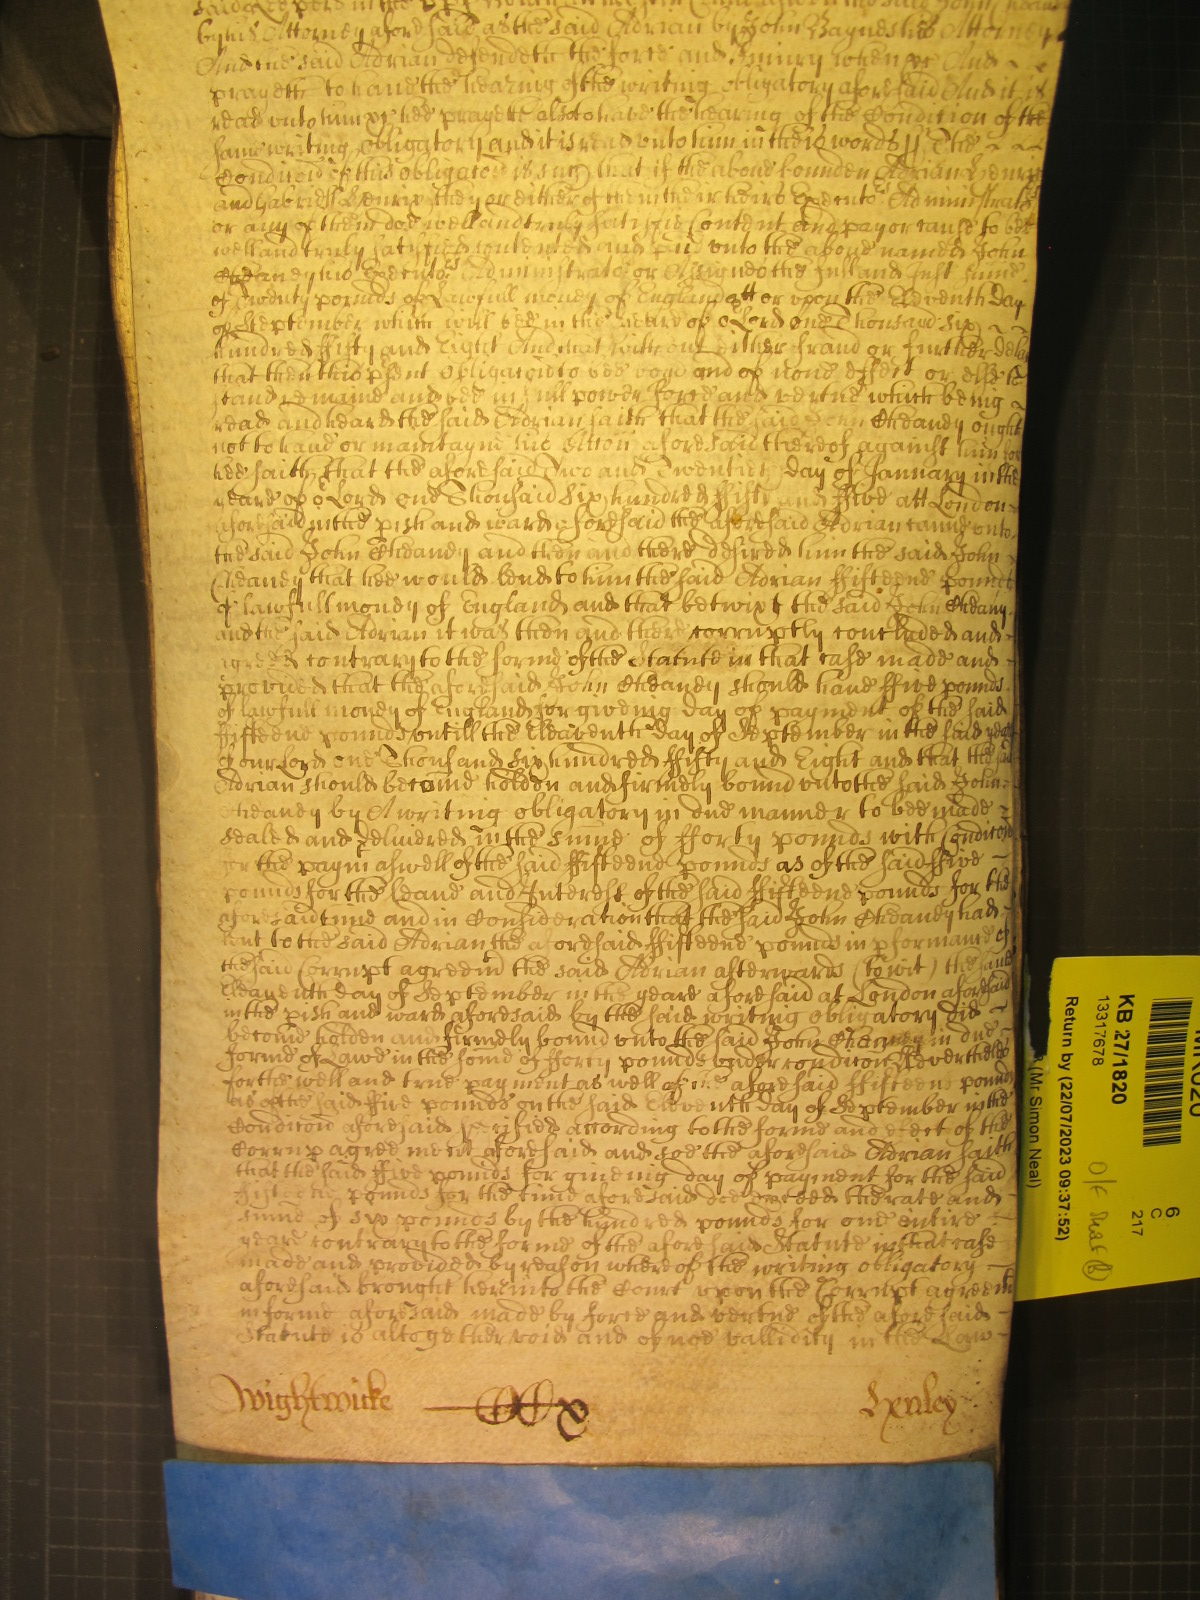 by his Attorney aforesaid as the said Adrian by John Bagnes his Attorney
And the said Adrian defendeth the force and Iniury when &c And
prayeth to have the hearing of the writing obligatory aforesaid And it is
read unto him &c hee prayeth alsoe to have the hearing of the Condicion of the
same writing obligatory and it is read unto him in theis words ss The
Condicion of this obligacion is such that if the above bounden Adrian Henrix
and Henrix they or either of them their heirs Executors Administrators
or any of them doe well and truly satisfie Content and pay or cause to bee
well and truly satisfied contented and paid unto the above named John
Cheaney his Executors Administrators or Assignes the full and just sume
of Twenty pounds of Lawfull money of England att or upon the Eleventh day
of September which will bee in the yeare of o Lord one Thousand six
hundred ffifty and Eight And that without either fraud or further delay
that then this psent obligacion to bee void and of none effect or else to
stand remaine and bee in full power force and vertue which being
read and heard the said Adrian saith that the said John Cheaney ought
not to have or maintayne his Accon aforesaid thereof against him for
hee saith that the aforesaid Two and Twentieth day of January in the
yeare of o Lord one Thousand six hundred ffifty and ffive att London
aforesaid in the pish and ward aforesaid the aforesaid Adrian came unto
the said John Cheaney and then and there desired him the said John
Cheaney that hee would lend to him the said Adrian ffifteene pounds
of lawfull money of England and that betwixt the said John Cheany
and the said Adrian it was then and there corruptly concluded and
agreed contrary to the forme of the Statute in that case made and
provided that the aforesaid John Cheaney should have ffive pounds
of lawfull money of England for giveing day of payment of the said
ffifteene pounds untill the Eleaventh day of September in the said yeare
of our Lord one Thousand six hundred ffifty and Eight and that the said
Adrian should become holden and firmely bound unto the said John
Cheaney by A writing obligatory in due manner to bee made
sealed and delivered in the sume of fforty pounds with Condicon
for the paymt aswell of the said ffifteene pounds as of the said ffive
pounds for the Leane and Interest of the said ffifteene pounds for the
aforesaid time and in Consideration that the said John Cheaney had
lent to the said Adrian the aforesaid ffifteene pounds in pformance of
the said Corrupt agreemt the said Adrian afterwards (to wit) the said
Eleaventh day of September in the yeare aforesaid at London aforesaid
in the pish and ward aforesaid by the said writing obligatory did
become holden and firmely bound unto the said John Cheaney in due
forme of Lawe in the some of fforty pounds under condicon Neverthelesse
for the well and true payment as well of the aforesaid ffifteene pounds
as of the said ffive pounds on the said Eleventh day of September in the
Condicon aforesaid specified according to the forme and effect of the
Corrup agreement aforesaid and soe the aforesaid Adrian saith
that the said ffive pounds for giveing day of payment for the said
ffifteene pounds for the time aforesaid doe exceed the rate and
sume of six pounds by the hundred pounds for one entire
yeare contrary to the forme of the aforesaid Statute in that case
made and provided by reason whereof the writing obligatory
aforesaid brought here into the Court upon the Corrupt agreemt
in forme aforesaid made by force and vertue of the aforesaid
Statute is altogether void and of noe vallidity in the Law
Wightwicke
Lxnley
KB 27/1820
13317678
Return by (22/07/2023 09:37:52)
(Mr. Simon Neal)
6
C
217